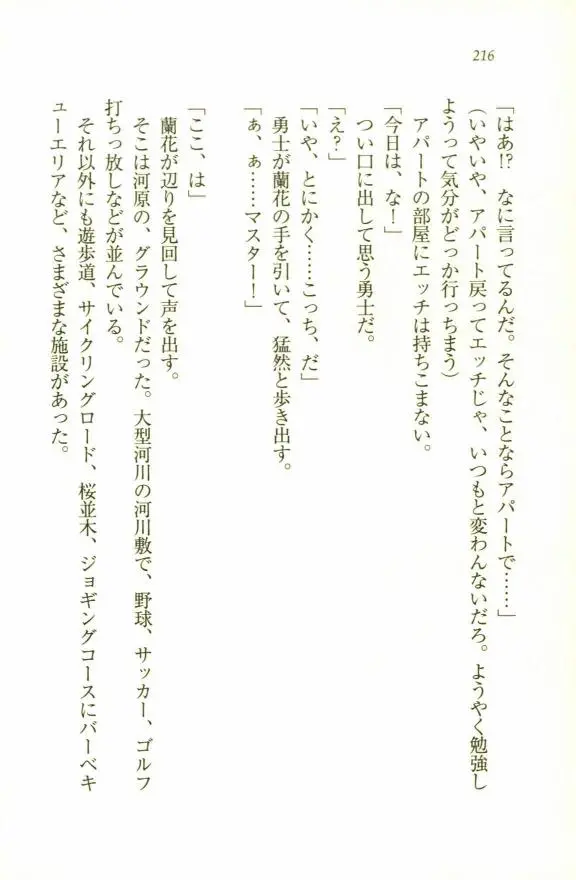 216
「はあ!?　なに言ってるんだ。そんなことならアパートで……」
（いやいや、アパート戻ってエッチじゃ、いつもと変わんないだろ。ようやく勉強し
ようって気分がどっか行っちまう）
アパートの部屋にエッチは持ちこまない。
「今日は、な！」
つい口に出して思う勇士だ。
「え？」
「いや、とにかく……こっち、だ」
勇士が蘭花の手を引いて、猛然と歩き出す。
「ぁ、ぁ……マスター！」
「ここ、は」
蘭花が辺りを見回して声を出す。
そこは河原の、グラウンドだった。大型河川の河川敷で、野球、サッカー、ゴルフ
打ちっ放しなどが並んでいる。
それ以外にも遊歩道、サイクリングロード、桜並木、ジョギングコースにバーベキ
ューエリアなど、さまざまな施設があった。